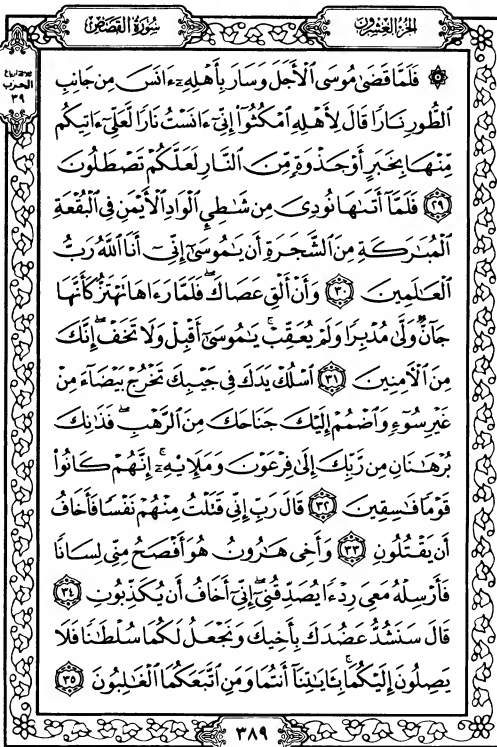 سُورَةُ القَصَصِ
الجُزْءُ العِشْرُونَ
ثلاثة أرباع
الحزب
٣٩
۞ فَلَمَّا قَضَىٰ مُوسَى ٱلْأَجَلَ وَسَارَ بِأَهْلِهِۦٓ ءَانَسَ مِن جَانِبِ
ٱلطُّورِ نَارًا قَالَ لِأَهْلِهِ ٱمْكُثُوٓا۟ إِنِّىٓ ءَانَسْتُ نَارًا لَّعَلِّىٓ ءَاتِيكُم
مِّنْهَا بِخَبَرٍ أَوْ جَذْوَةٍ مِّنَ ٱلنَّارِ لَعَلَّكُمْ تَصْطَلُونَ
﴿٢٩﴾ فَلَمَّآ أَتَىٰهَا نُودِىَ مِن شَٰطِئِ ٱلْوَادِ ٱلْأَيْمَنِ فِى ٱلْبُقْعَةِ
ٱلْمُبَٰرَكَةِ مِنَ ٱلشَّجَرَةِ أَن يَٰمُوسَىٰٓ إِنِّىٓ أَنَا ٱللَّهُ رَبُّ
ٱلْعَٰلَمِينَ ﴿٣٠﴾ وَأَنْ أَلْقِ عَصَاكَ ۖ فَلَمَّا رَءَاهَا تَهْتَزُّ كَأَنَّهَا
جَآنٌّ وَلَّىٰ مُدْبِرًا وَلَمْ يُعَقِّبْ ۚ يَٰمُوسَىٰٓ أَقْبِلْ وَلَا تَخَفْ ۖ إِنَّكَ
مِنَ ٱلْءَامِنِينَ ﴿٣١﴾ ٱسْلُكْ يَدَكَ فِى جَيْبِكَ تَخْرُجْ بَيْضَآءَ مِنْ
غَيْرِ سُوٓءٍ وَٱضْمُمْ إِلَيْكَ جَنَاحَكَ مِنَ ٱلرَّهْبِ ۖ فَذَٰنِكَ
بُرْهَٰنَانِ مِن رَّبِّكَ إِلَىٰ فِرْعَوْنَ وَمَلَإِي۟هِۦٓ ۚ إِنَّهُمْ كَانُوا۟
قَوْمًا فَٰسِقِينَ ﴿٣٢﴾ قَالَ رَبِّ إِنِّى قَتَلْتُ مِنْهُمْ نَفْسًا فَأَخَافُ
أَن يَقْتُلُونِ ﴿٣٣﴾ وَأَخِى هَٰرُونُ هُوَ أَفْصَحُ مِنِّى لِسَانًا
فَأَرْسِلْهُ مَعِىَ رِدْءًا يُصَدِّقُنِىٓ ۖ إِنِّىٓ أَخَافُ أَن يُكَذِّبُونِ ﴿٣٤﴾
قَالَ سَنَشُدُّ عَضُدَكَ بِأَخِيكَ وَنَجْعَلُ لَكُمَا سُلْطَٰنًا فَلَا
يَصِلُونَ إِلَيْكُمَا ۚ بِـَٔايَٰتِنَآ أَنتُمَا وَمَنِ ٱتَّبَعَكُمَا ٱلْغَٰلِبُونَ ﴿٣٥﴾
٣٨٩